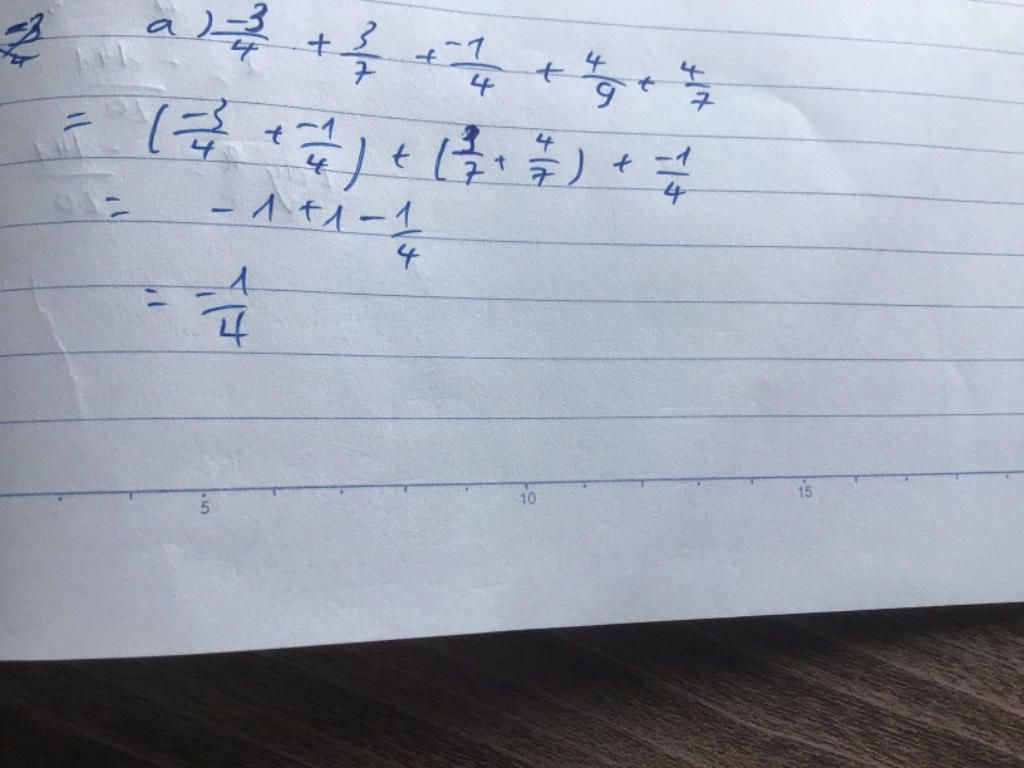 a) -3/4 + 3/7 + -1/4 + 4/9 + 4/7
= (-3/4 + -1/4) + (3/7 + 4/7) + -1/4
= -1 + 1 - 1/4
= -1/4
5 10 15